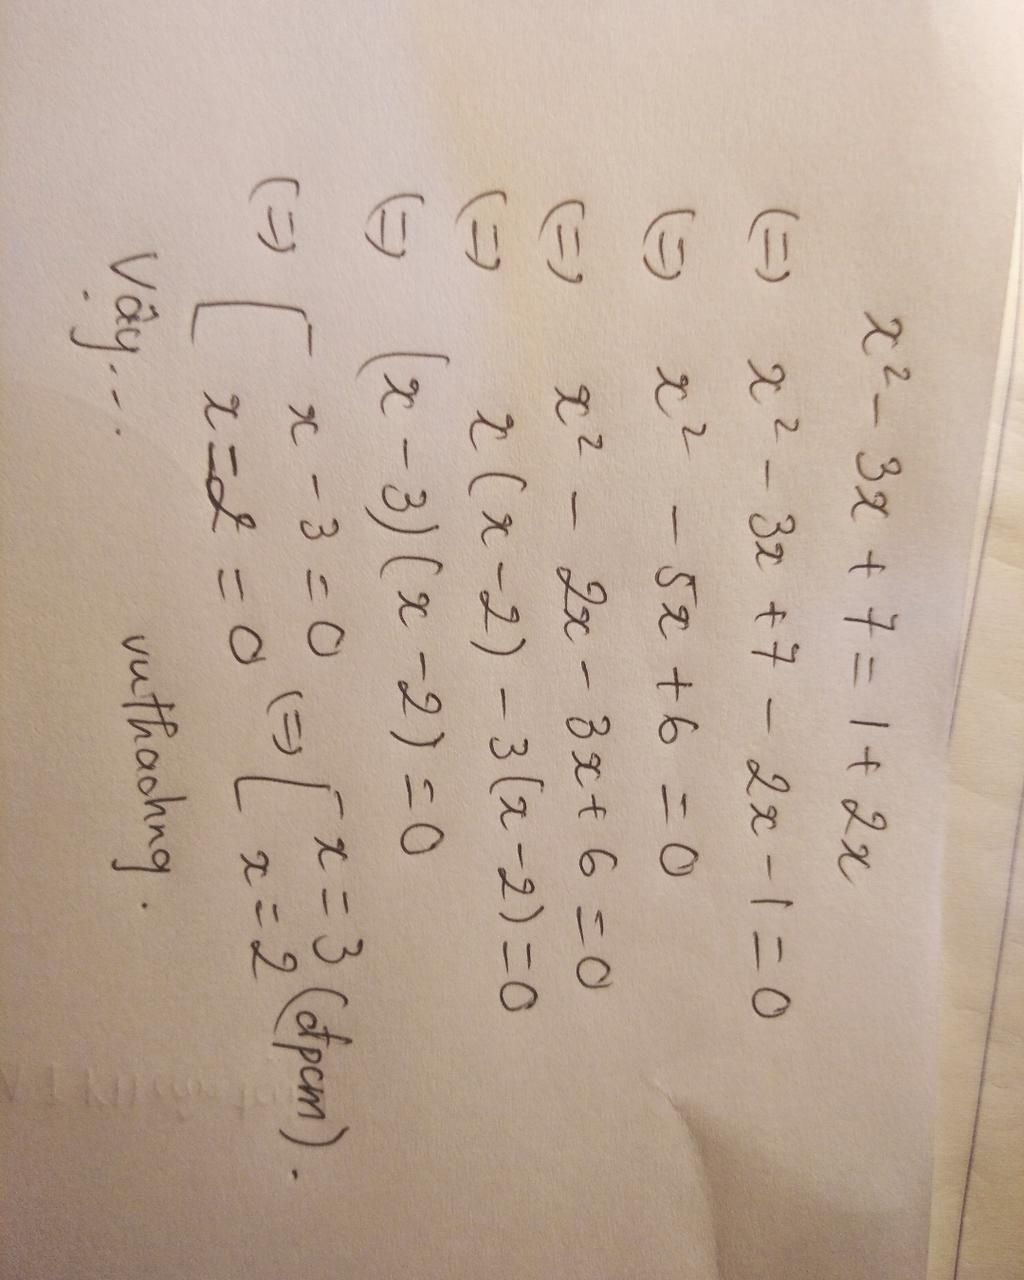 x² - 3x + 7 = 1 + 2x
(=) x² - 3x + 7 - 2x - 1 = 0
(=) x² - 5x + 6 = 0
(=) x² - 2x - 3x + 6 = 0
(=) x(x - 2) - 3(x - 2) = 0
(=) (x - 3)(x - 2) = 0
(=) [ x - 3 = 0 (=) [ x = 3
x = 2 = 0 x = 2 (đpcm).
Vậy... vuthaohng.